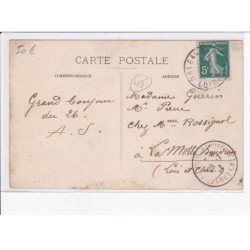 50€
CARTE POSTALE
CORRESPONDANCE
ADRESSE
45
Grand bonjour
du 26.
A. S.
Madame Guérin
Mon Pierre
Chez Mme Rossignol
à La Motte Beuvron
(Loir et Cher)